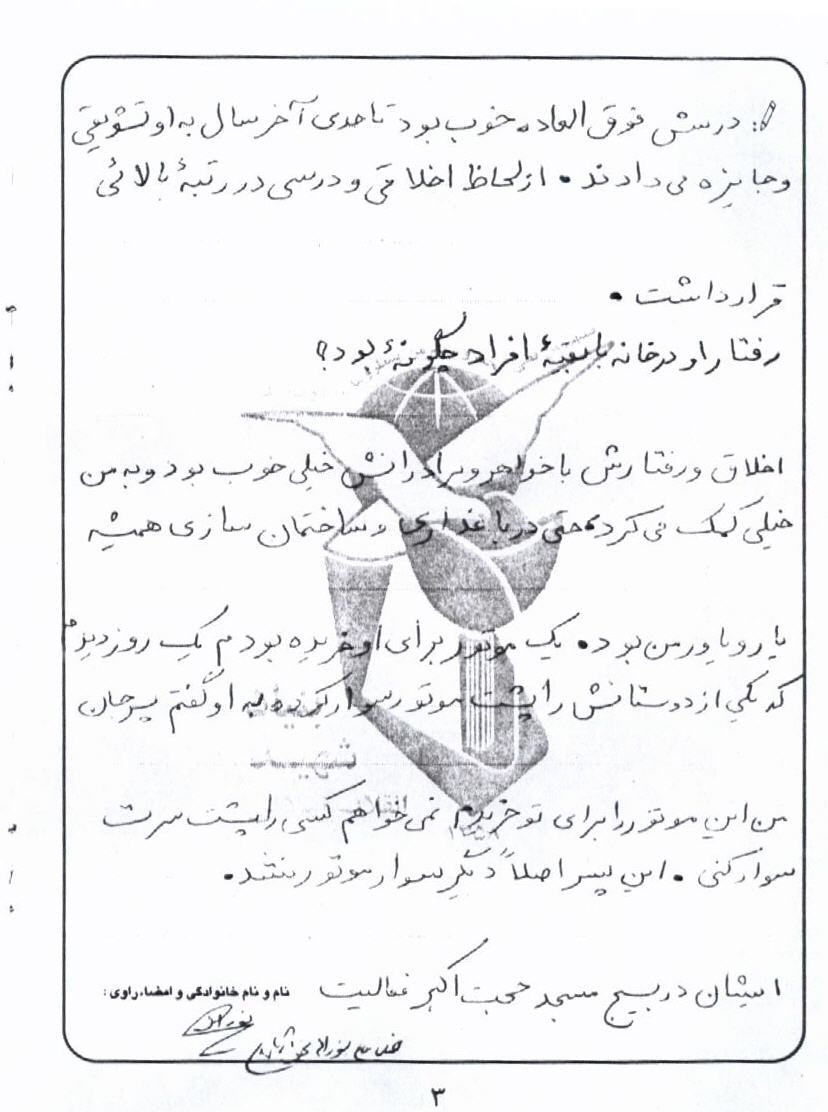 ج: درسش فوق العاده خوب بود تا حدی آخر سال به او تشویقی
و جایزه می دادند. از لحاظ اخلاقی و درسی در رتبهٔ بالائی
قرار داشت.
رفتار او در خانه با بقیهٔ افراد چگونهٔ بود؟
اخلاق و رفتارش با خواهر و برادرانش خیلی خوب بود و به من
خیلی کمک می کرد، حتی در باغداری و ساختمان سازی همیشه
یار و یاور من بود. یک موتور برای او خریده بودم یک روز دیدم
که یکی از دوستانش را پشت موتور سوار کرده به او گفتم پسر جان
من این موتور را برای تو خریدم نمی خواهم کسی را پشت سرت
سوار کنی. این پسر اصلاً دیگر سوار موتور نشد.
ایشان در بسیج مسجد حجت اکبر فعالیت
نام و نام خانوادگی و امضاء راوی:
شهید
۳